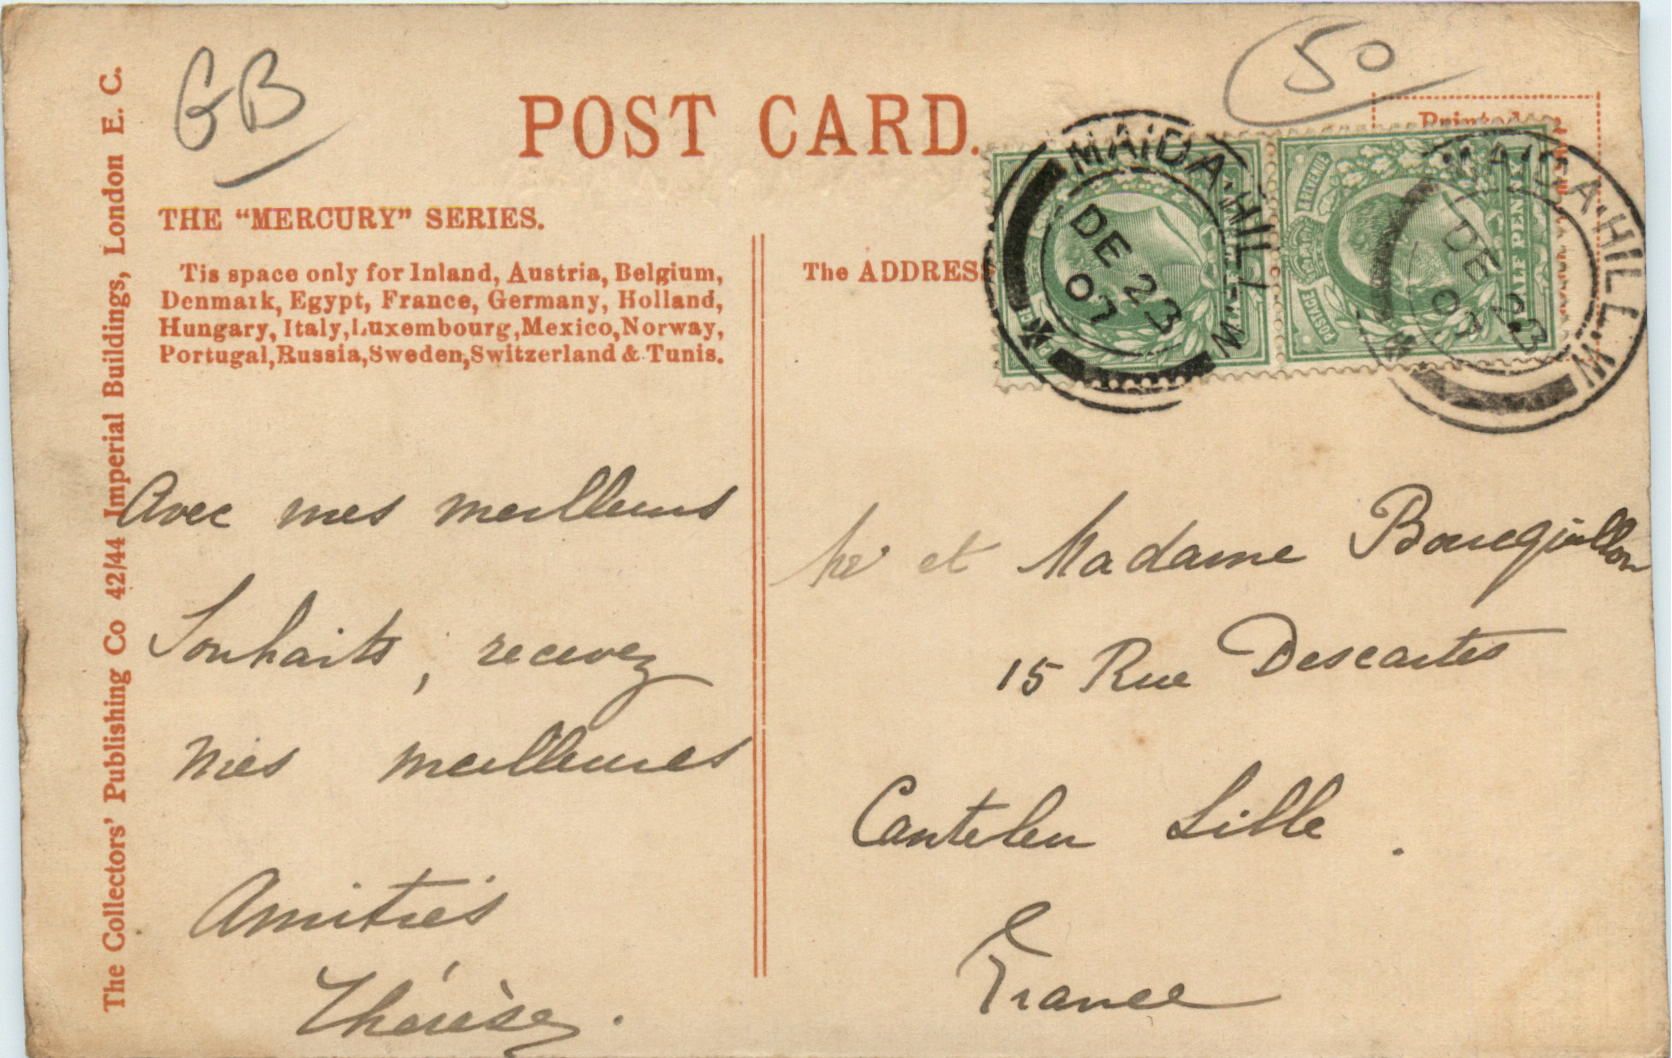 GB
50
POST CARD.
THE "MERCURY" SERIES.
Tis space only for Inland, Austria, Belgium,
Denmark, Egypt, France, Germany, Holland,
Hungary, Italy, Luxembourg, Mexico, Norway,
Portugal, Russia, Sweden, Switzerland & Tunis.
The ADDRESS
Printed
MAIDA·HILL·W
DE 23
07
REVENUE
POSTAGE
HALF PENNY
MAIDA·HILL·W
DE 23
07
The Collectors' Publishing Co 42/44 Imperial Buildings, London E. C.
Avec mes meilleurs
Souhaits, recevez
mes meilleures
Amitiés
Thérèse.
Mr et Madame Bouquillon
15 Rue Descartes
Canteleu Lille.
France